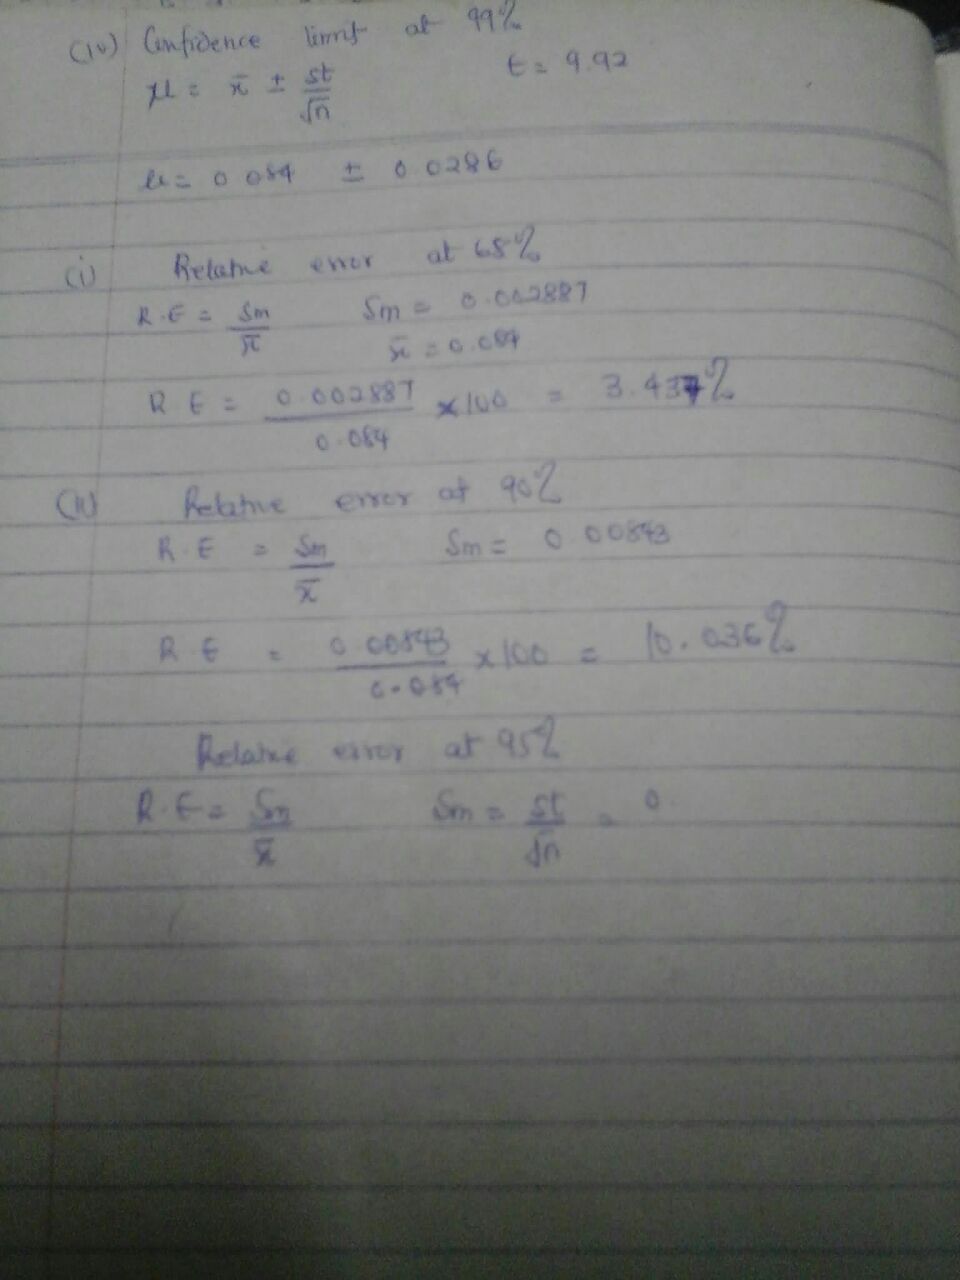 (iv) Confidence limit at 99%
μ = x̄ ± st/√n t = 9.92
μ = 0.084 ± 0.0286
(i) Relative error at 68%
R.E = Sm/x̄ Sm = 0.002887
x̄ = 0.084
R E = 0.002887/0.084 × 100 = 3.437%
(ii) Relative error at 90%
R.E = Sm/x̄ Sm = 0.00843
R E = 0.00843/0.084 × 100 = 10.036%
Relative error at 95%
R.E = Sm/x̄ Sm = st/√n = 0.